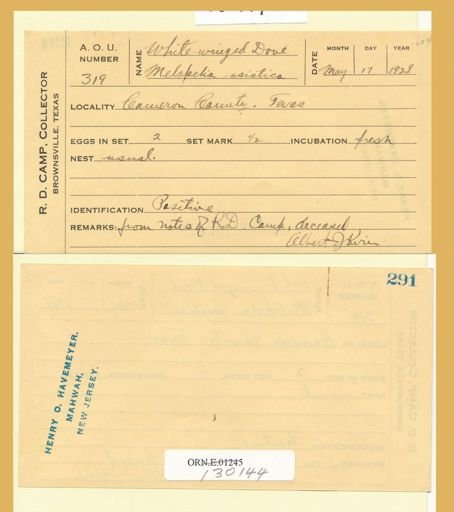 R. D. CAMP, COLLECTOR
BROWNSVILLE, TEXAS
A. O. U. NUMBER 319
NAME White winged Dove
Melopelia asiatica
DATE MONTH DAY YEAR
May 17 1928
LOCALITY Cameron County. Texas
EGGS IN SET 2 SET MARK 1/2 INCUBATION fresh
NEST usual.
IDENTIFICATION Positive
REMARKS: from notes of R.D. Camp, deceased
Albert J Kirn
291
HENRY O. HAVEMEYER.
MAHWAH,
NEW JERSEY.
ORN.E.01245
130144